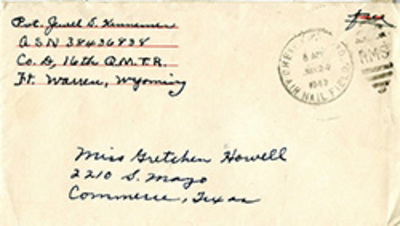 Pvt. Jewell S. Kennemer
free
ASN 38436838
Co. D, 16th Q.M.T.R.
Ft. Warren, Wyoming
8 AM
1943
AIR MAIL FIELD
RMS
Miss Gretchen Howell
2210 S. Mayo
Commerce, Texas